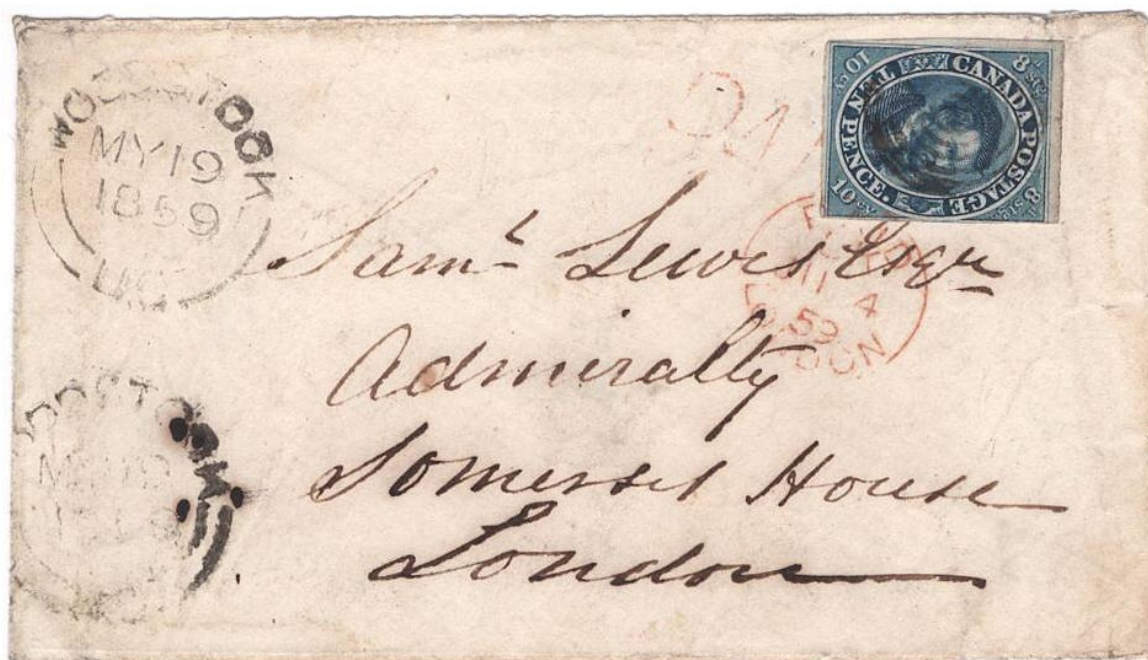 WOODSTOCK
MY 19
1859
U.C.
CANADA POSTAGE
TEN PENCE.
10 CY
8d Stg.
10 CY
8d Stg.
PAID
59
LONDON
Saml. Lewis Esqre
Admiralty
Somerset House
London